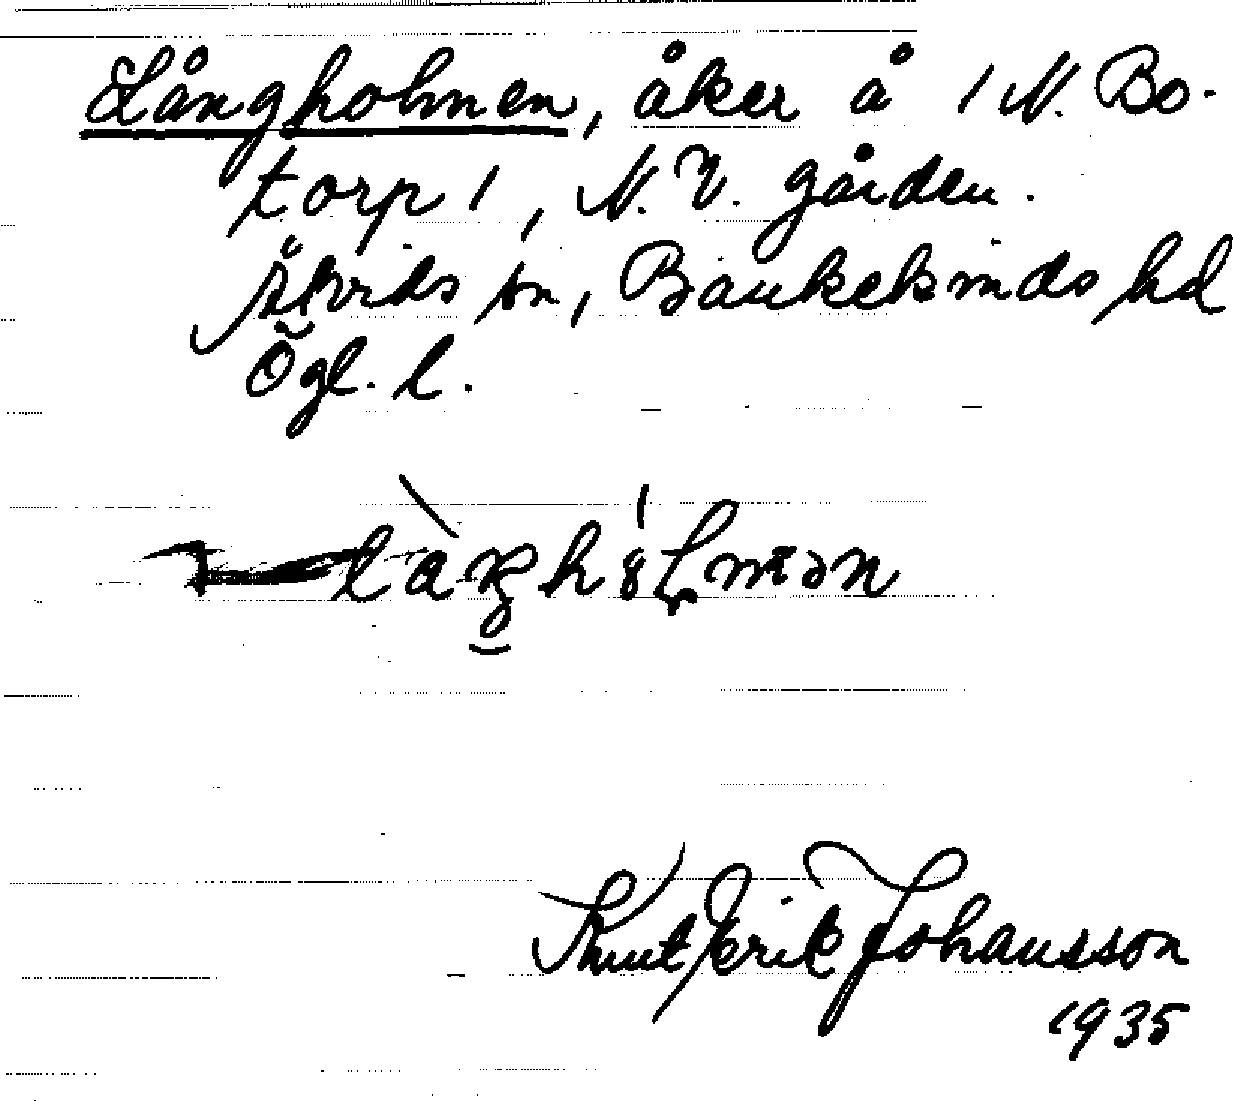 Långholmen, åker å 1 N. Bo-
torp 1, N. V. gården.
Åtvids sn, Bankekinds hd
Ögl. l.
Knut Erik Johansson
1935